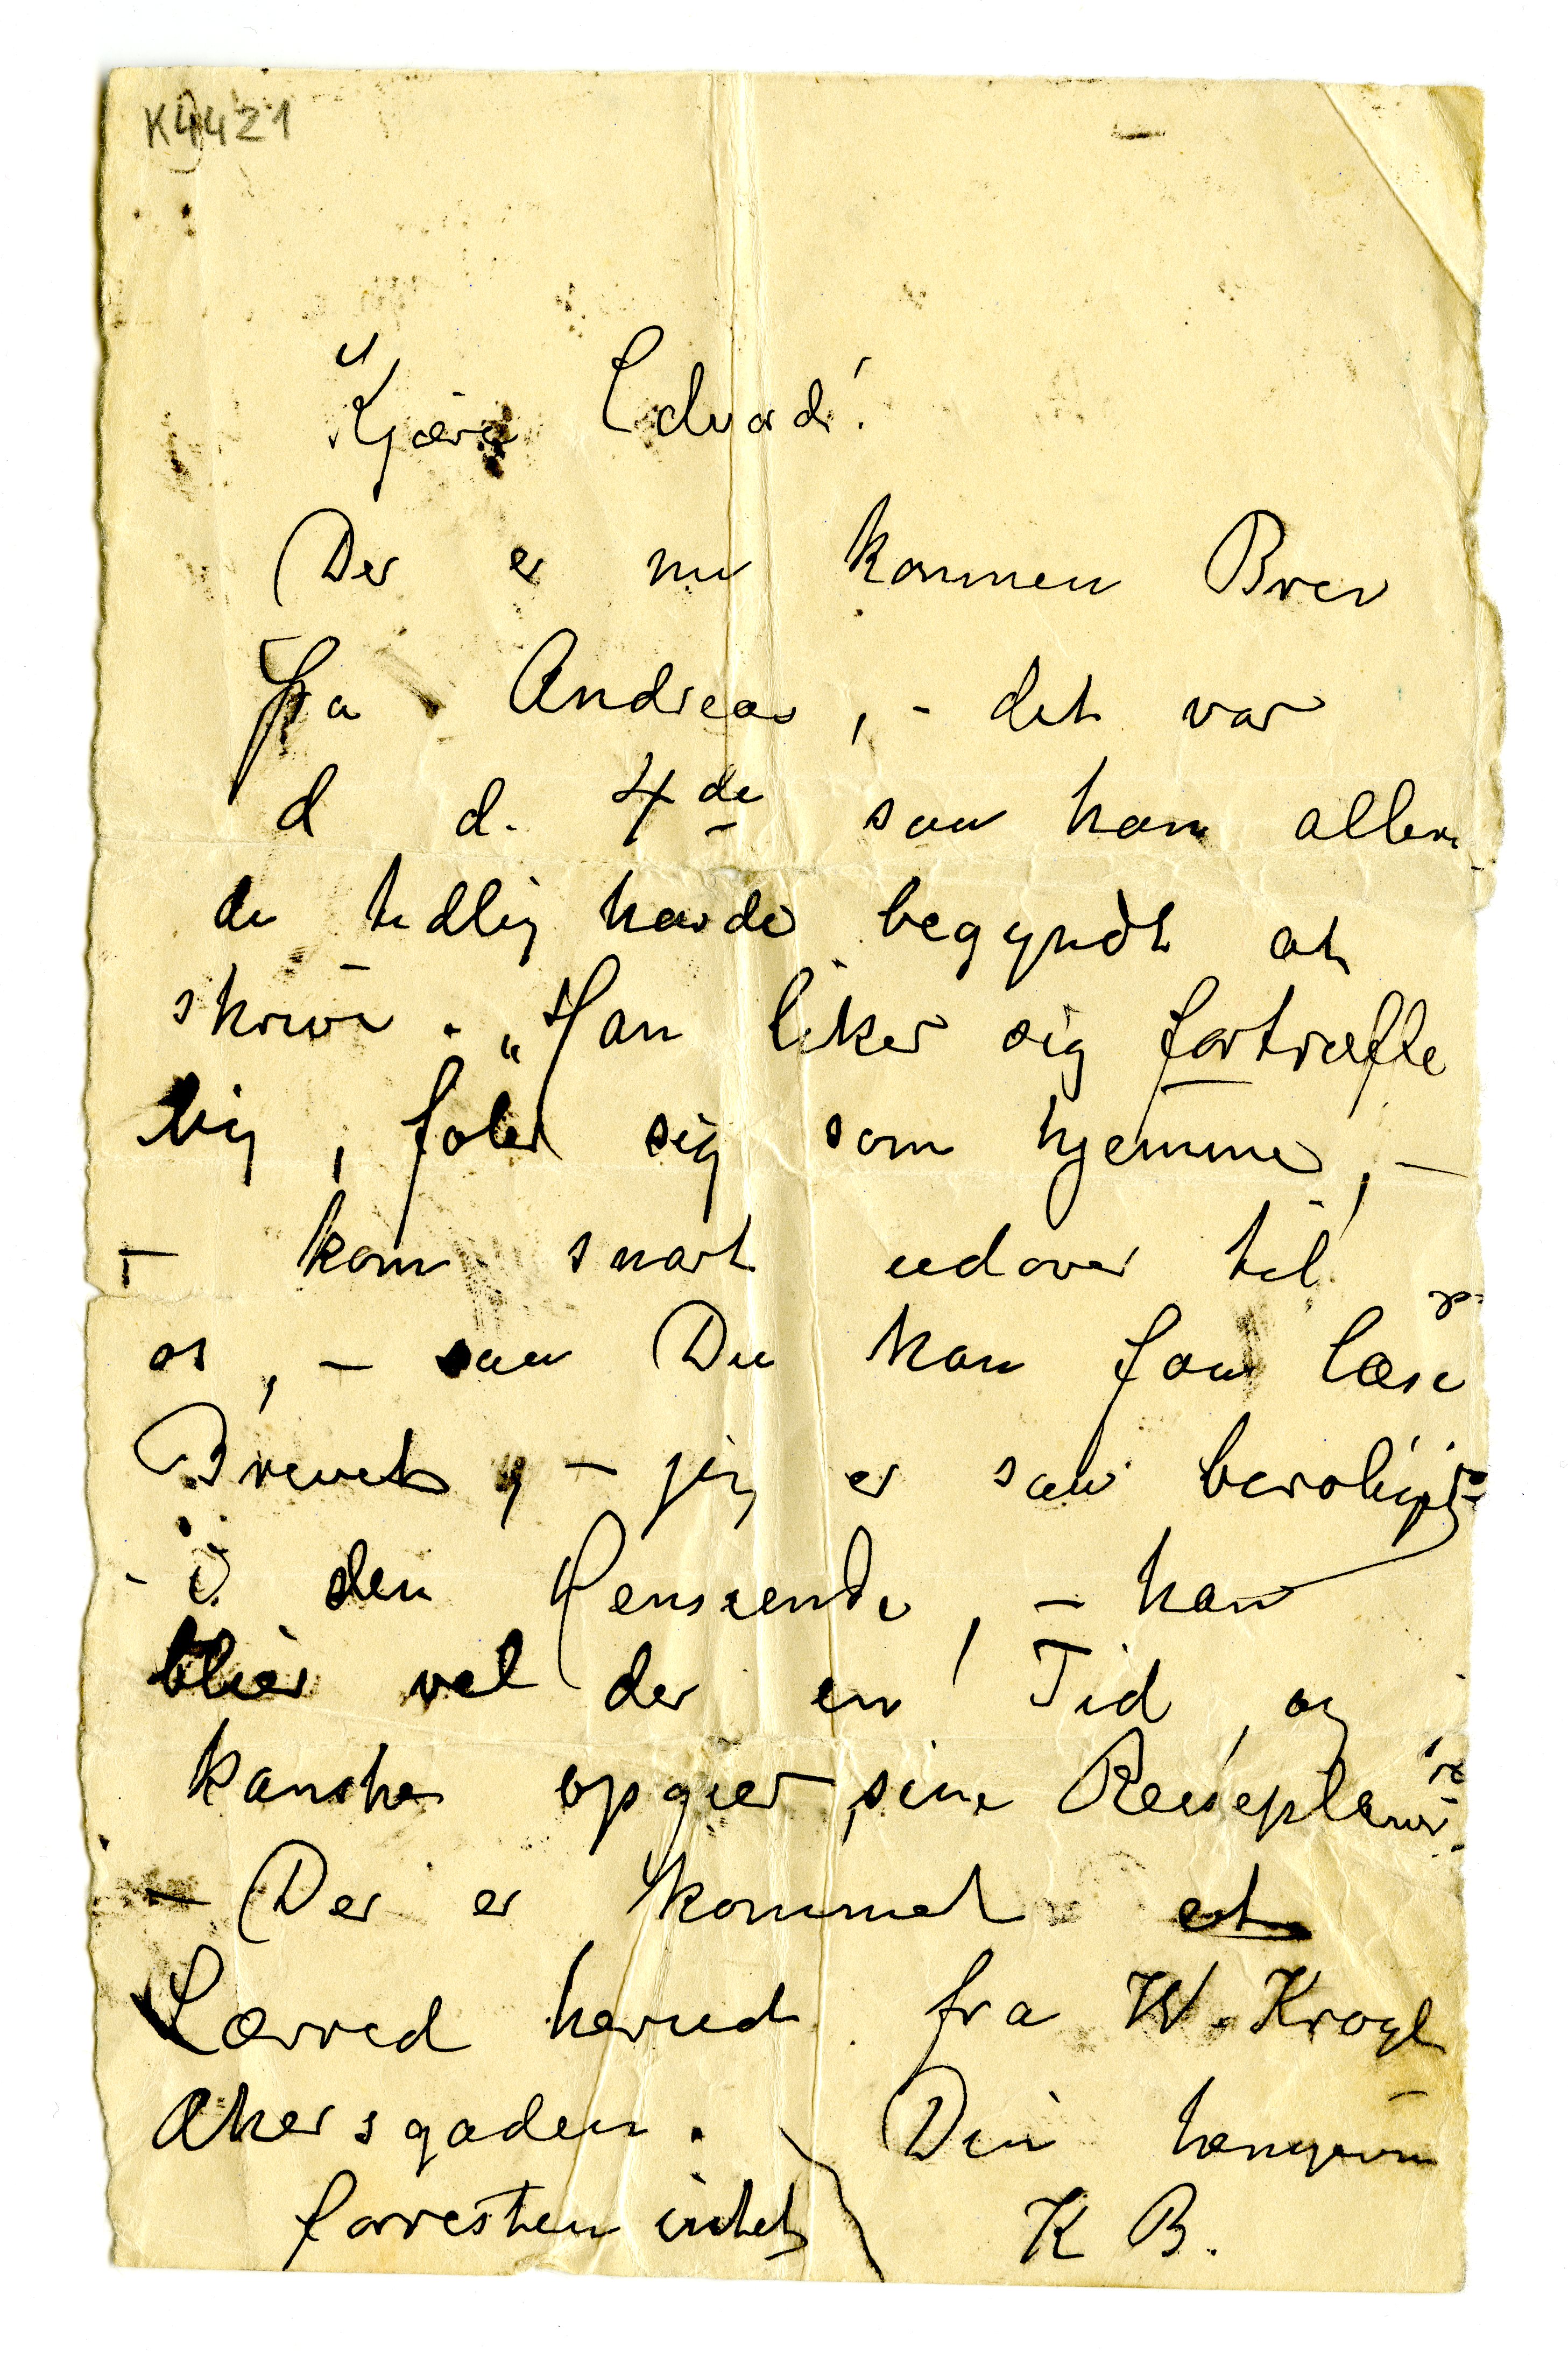 K4421
Kjære Edvard!
Der er nu kommen Brev
fra Andreas, - det var
d d. 4de saa han aller
de tidlig havde begyndt at
skrive. „Han liker sig fortræffe
lig, føler sig som hjemme, -
- kom snart udover til
os, - saa Du kan faa læse
Brevet, - jeg er saa beroliget
- i den Henseende, - han
blier vel der en Tid, og
kanske opgier sine Reiseplaner.
- Der er kommet et
Lærred herud fra W. Krogh
Akersgaden. Din hengivne
forresten intet K B.